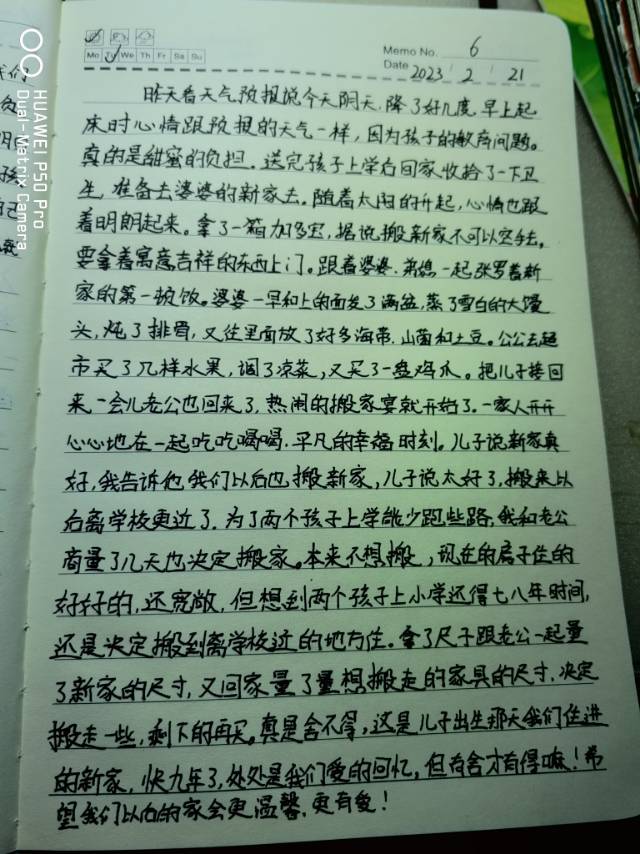 HUAWEI P50 Pro
Dual-Matrix Camera
Mo Tu We Th Fr Sa Su
Memo No. 6
Date 2023 / 2 / 21
昨天看天气预报说今天阴天,降了好几度,早上起
床时心情跟预报的天气一样,因为孩子的教育问题。
真的是甜蜜的负担,送完孩子上学后回家收拾了一下卫
生,准备去婆婆的新家去。随着太阳的升起,心情也跟
着明朗起来。拿了一箱加多宝,据说搬新家不可以空手去。
要拿着寓意吉祥的东西上门。跟着婆婆、弟媳一起张罗着新
家的第一顿饭。婆婆一早和上的面发了满盆,蒸了雪白的大馒
头,炖了排骨,又往里面放了好多海带,山菌和土豆。公公去超
市买了几样水果,调了凉菜,又买了一盘鸡爪。把儿子接回
来一会儿老公也回来了,热闹的搬家宴就开始了。一家人开开
心心地在一起吃吃喝喝,平凡的幸福时刻。儿子说新家真
好,我告诉他我们以后也搬新家,儿子说太好了,搬来以
后离学校更近了,为了两个孩子上学能少跑些路,我和老公
商量了几天也决定搬家。本来不想搬,现在的房子住的
好好的,还宽敞,但想到两个孩子上小学还得七八年时间,
还是决定搬到离学校近的地方住。拿了尺子跟老公一起量
了新家的尺寸,又回家量了量想搬走的家具的尺寸,决定
搬走一些,剩下的再买。真是舍不得,这是儿子出生那天我们住进
的新家,快九年了,处处是我们爱的回忆,但有舍才有得嘛!希
望我们以后的家会更温馨,更有爱!